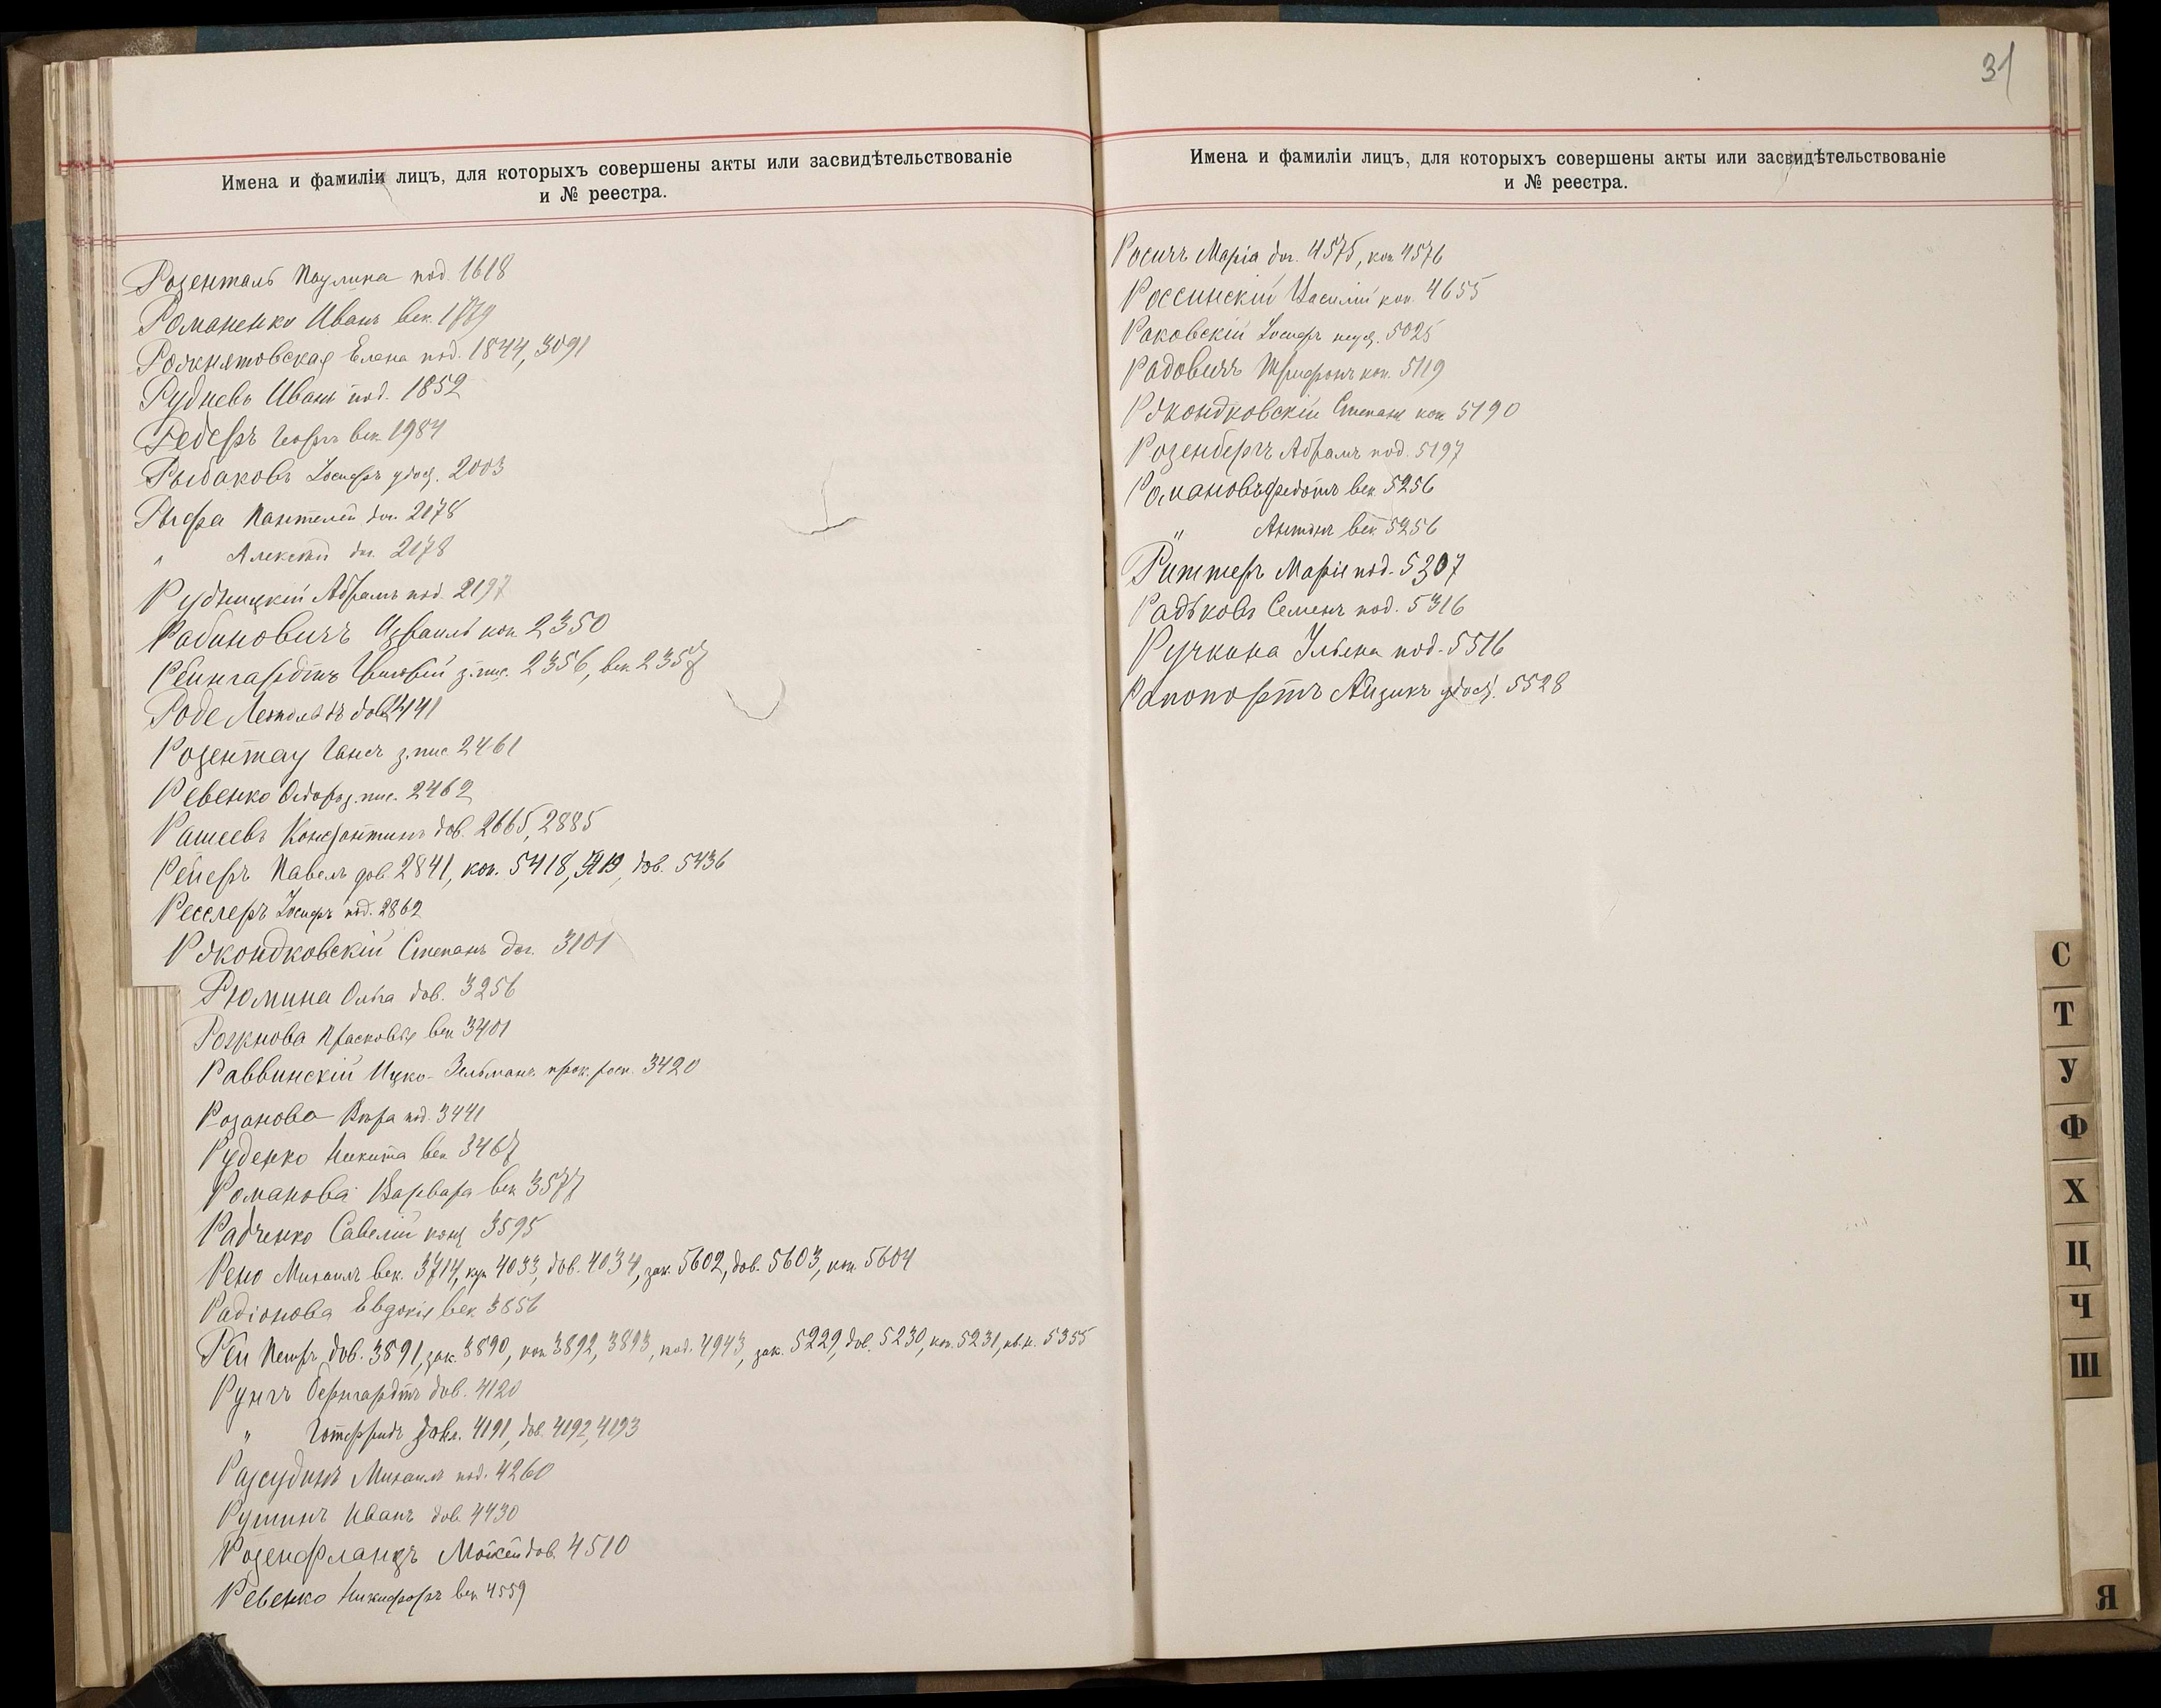 Имена и фамиліи лицъ, для которыхъ совершены акты или засвидѣтельствованіе
и № реестра.
Розенталь Паулина под. 1618
Романенко Иванъ век. 1779
Рожнятовская Елена под. 1844, 3091
Рудневъ Иванъ под. 1852
Редеръ Георгъ век. 1984
Рыбаковъ Іосифъ удост. 2003
Рыфа Пантелей дог. 2178
" Алексѣй дог. 2178
Рудницкій Абрамъ под. 2197
Рабиновичъ Израиль коп. 2350
Рейнгардтъ з. пис. 2356, век. 2357
Роде Леопольдъ дов. 2441
Розентау Гансъ з. пис. 2461
Ревенко Ѳедоръ з. пис. 2462
Рашеевъ Константинъ дов. 2665, 2885
Рейеръ Павелъ дов. 2841, коп. 5418, 5419, дов. 5436
Ресслеръ Іосифъ под. 2862
Ржондковскій Степанъ дог. 3101
Рюмина Ольга дов. 3256
Рожнова Прасковья век. 3401
Раввинскій Ицко-Зельманъ 3420
Розанова Вѣра под. 3441
Руденко Никита век. 3467
Романова Варвара век. 3577
Радченко Савелій 3595
Рено Михаилъ век. 3714, куп. 4033, дов. 4034, зак. 5602, дов. 5603, коп. 5604
Радіонова Евдокія век. 3856
Рей Петръ дов. 3891, зак. 3890, коп. 3892, 3893, под. 4943, зак. 5229, дов. 5230, коп. 5231, 5355
Рунгъ Бернгардтъ дов. 4120
" Готфридъ 4191, дов. 4192, 4193
Разсудинъ Михаилъ под. 4260
Рушинъ Иванъ дов. 4430
Розенфланцъ Мойсей дов. 4510
Ревенко Никифоръ век. 4559
31
Имена и фамиліи лицъ, для которыхъ совершены акты или засвидѣтельствованіе
и № реестра.
Росичъ Марія дог. 4575, коп. 4576
Россинскій Василій коп. 4655
Раковскій Іосифъ 5025
Радовичъ Трифонъ коп. 5119
Ржондковскій Степанъ коп. 5190
Розенбергъ Абрамъ под. 5197
Романовъ Федотъ век. 5256
" Антонъ век. 5256
Риттеръ Марія под. 5307
Радьковъ Семенъ под. 5316
Ручкина Ульяна под. 5516
Рапопортъ Айзикъ удост. 5528
С
Т
У
Ф
Х
Ц
Ч
Ш
Я